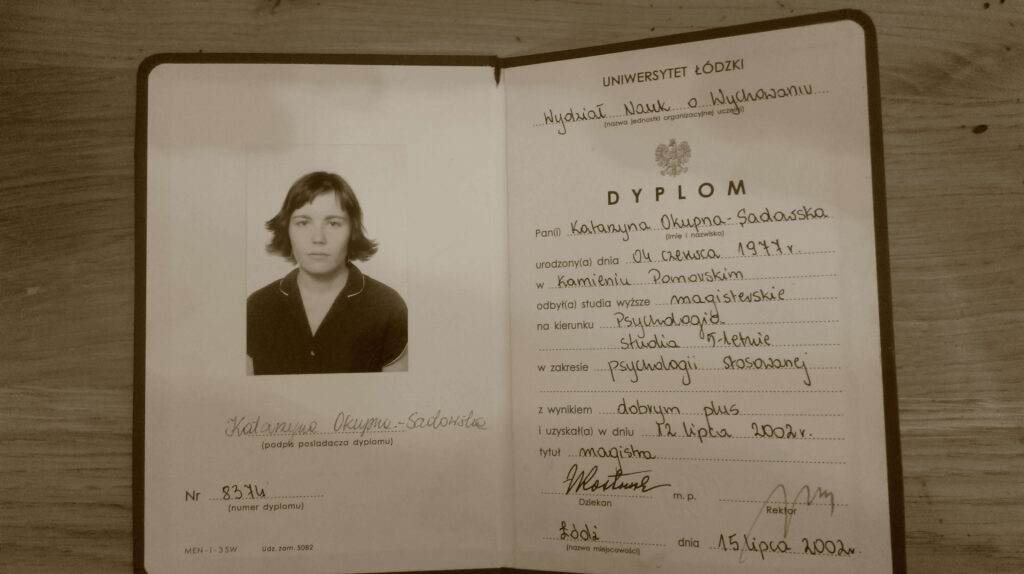 Katarzyna Okupna-Sadowska
(podpis posiadacza dyplomu)
Nr 8374
(numer dyplomu)
MEN-I-3SW Udz. zam. 5082
UNIWERSYTET ŁÓDZKI
Wydział Nauk o Wychowaniu
(nazwa jednostki organizacyjnej uczelni)
DYPLOM
Pan(i) Katarzyna Okupna-Sadowska
(imię i nazwisko)
urodzony(a) dnia 04 czerwca 1977 r.
w Kamieniu Pomorskim
odbył(a) studia wyższe magisterskie
na kierunku Psychologia
studia 5-letnie
w zakresie psychologii stosowanej
z wynikiem dobrym plus
i uzyskał(a) w dniu 12 lipca 2002 r.
tytuł magistra
Dziekan m. p. Rektor
Łódź dnia 15 lipca 2002 r.
(nazwa miejscowości)